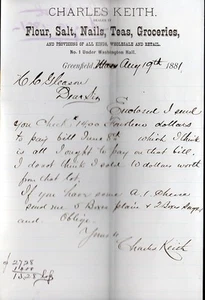 CHARLES KEITH,
DEALER IN
Flour, Salt, Nails, Teas, Groceries,
AND PROVISIONS OF ALL KINDS, WHOLESALE AND RETAIL.
No. 1 Under Washington Hall.
Greenfield, Aug 19th 1881
H. C. Gleason
Dear Sir
Enclosed I send
you Check for fourteen dollars
to pay bill June 8th which I think
is all I ought to pay on that bill.
I do not think I sold 10 dollars worth
from that lot.
If you have some A.1. Cheese
send me 5 Boxes plain & 2 Boxes Sage,
and Oblige
Yours &c
Charles Keith
27.28
14.00
13.28